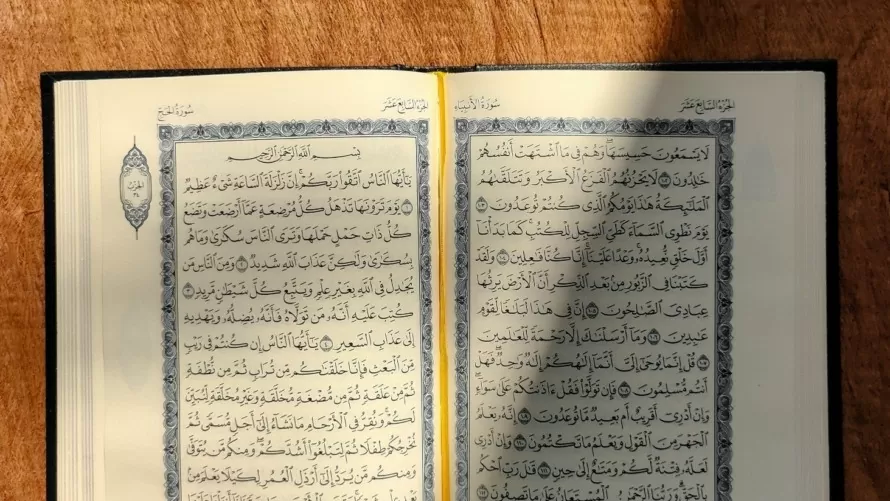 الجزء السابع عشر
سورة الأنبياء
لَا يَسْمَعُونَ حَسِيسَهَا ۖ وَهُمْ فِى مَا ٱشْتَهَتْ أَنفُسُهُمْ
خَٰلِدُونَ ١٠٢ لَا يَحْزُنُهُمُ ٱلْفَزَعُ ٱلْأَكْبَرُ وَتَتَلَقَّىٰهُمُ
ٱلْمَلَٰٓئِكَةُ هَٰذَا يَوْمُكُمُ ٱلَّذِى كُنتُمْ تُوعَدُونَ ١٠٣
يَوْمَ نَطْوِى ٱلسَّمَآءَ كَطَىِّ ٱلسِّجِلِّ لِلْكُتُبِ ۚ كَمَا بَدَأْنَآ
أَوَّلَ خَلْقٍ نُّعِيدُهُۥ ۚ وَعْدًا عَلَيْنَآ ۚ إِنَّا كُنَّا فَٰعِلِينَ ١٠٤ وَلَقَدْ
كَتَبْنَا فِى ٱلزَّبُورِ مِنۢ بَعْدِ ٱلذِّكْرِ أَنَّ ٱلْأَرْضَ يَرِثُهَا
عِبَادِىَ ٱلصَّٰلِحُونَ ١٠٥ إِنَّ فِى هَٰذَا لَبَلَٰغًا لِّقَوْمٍ
عَٰبِدِينَ ١٠٦ وَمَآ أَرْسَلْنَٰكَ إِلَّا رَحْمَةً لِّلْعَٰلَمِينَ
١٠٧ قُلْ إِنَّمَا يُوحَىٰٓ إِلَىَّ أَنَّمَآ إِلَٰهُكُمْ إِلَٰهٌ وَٰحِدٌ ۖ فَهَلْ
أَنتُم مُّسْلِمُونَ ١٠٨ فَإِن تَوَلَّوْا۟ فَقُلْ ءَاذَنتُكُمْ عَلَىٰ سَوَآءٍ ۖ
وَإِنْ أَدْرِىٓ أَقَرِيبٌ أَم بَعِيدٌ مَّا تُوعَدُونَ ١٠٩ إِنَّهُۥ يَعْلَمُ
ٱلْجَهْرَ مِنَ ٱلْقَوْلِ وَيَعْلَمُ مَا تَكْتُمُونَ ١١٠ وَإِنْ أَدْرِى
لَعَلَّهُۥ فِتْنَةٌ لَّكُمْ وَمَتَٰعٌ إِلَىٰ حِينٍ ١١١ قَٰلَ رَبِّ ٱحْكُم
بِٱلْحَقِّ ۗ وَرَبُّنَا ٱلرَّحْمَٰنُ ٱلْمُسْتَعَانُ عَلَىٰ مَا تَصِفُونَ ١١٢
الجزء السابع عشر
سورة الحج
بِسْمِ ٱللَّهِ ٱلرَّحْمَٰنِ ٱلرَّحِيمِ
يَٰٓأَيُّهَا ٱلنَّاسُ ٱتَّقُوا۟ رَبَّكُمْ ۚ إِنَّ زَلْزَلَةَ ٱلسَّاعَةِ شَىْءٌ عَظِيمٌ
١ يَوْمَ تَرَوْنَهَا تَذْهَلُ كُلُّ مُرْضِعَةٍ عَمَّآ أَرْضَعَتْ وَتَضَعُ
كُلُّ ذَاتِ حَمْلٍ حَمْلَهَا وَتَرَى ٱلنَّاسَ سُكَٰرَىٰ وَمَا هُم
بِسُكَٰرَىٰ وَلَٰكِنَّ عَذَابَ ٱللَّهِ شَدِيدٌ ٢ وَمِنَ ٱلنَّاسِ مَن
يُجَٰدِلُ فِى ٱللَّهِ بِغَيْرِ عِلْمٍ وَيَتَّبِعُ كُلَّ شَيْطَٰنٍ مَّرِيدٍ ٣
كُتِبَ عَلَيْهِ أَنَّهُۥ مَن تَوَلَّاهُ فَأَنَّهُۥ يُضِلُّهُۥ وَيَهْدِيهِ
إِلَىٰ عَذَابِ ٱلسَّعِيرِ ٤ يَٰٓأَيُّهَا ٱلنَّاسُ إِن كُنتُمْ فِى رَيْبٍ
مِّنَ ٱلْبَعْثِ فَإِنَّا خَلَقْنَٰكُم مِّن تُرَابٍ ثُمَّ مِن نُّطْفَةٍ
ثُمَّ مِنْ عَلَقَةٍ ثُمَّ مِن مُّضْغَةٍ مُّخَلَّقَةٍ وَغَيْرِ مُخَلَّقَةٍ لِّنُبَيِّنَ
لَكُمْ ۚ وَنُقِرُّ فِى ٱلْأَرْحَامِ مَا نَشَآءُ إِلَىٰٓ أَجَلٍ مُّسَمًّى ثُمَّ
نُخْرِجُكُمْ طِفْلًا ثُمَّ لِتَبْلُغُوٓا۟ أَشُدَّكُمْ ۖ وَمِنكُم مَّن يُتَوَفَّىٰ
وَمِنكُم مَّن يُرَدُّ إِلَىٰٓ أَرْذَلِ ٱلْعُمُرِ لِكَيْلَا يَعْلَمَ مِنۢ
الحزب
٣٤